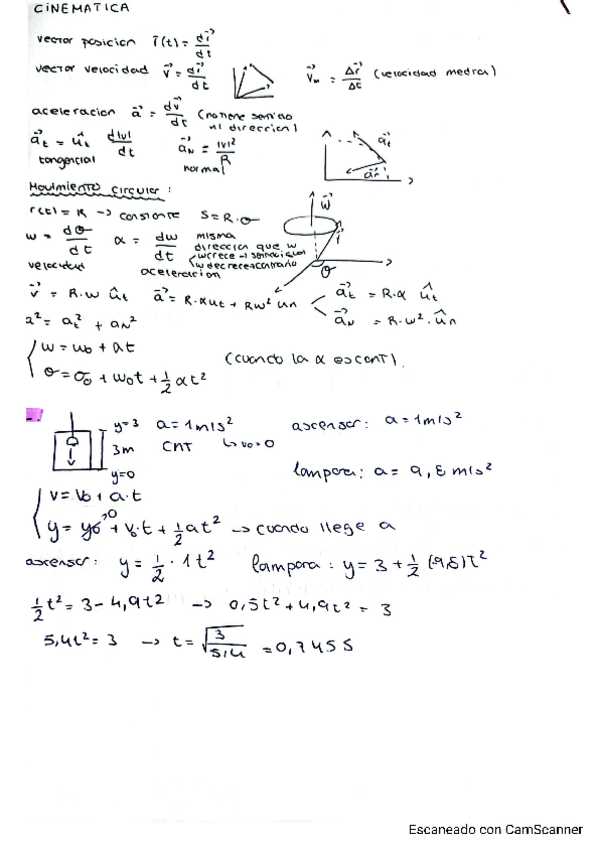 CINEMATICA
vector posicion r⃗(t) = dr⃗/dt
vector velocidad v⃗ = dr⃗/dt v⃗m = Δr⃗/Δt (velocidad media)
aceleracion a⃗ = dv⃗/dt (no tiene sentido ni direccion)
a⃗t = û⃗t d|v|/dt a⃗N = |v|²/R a⃗t
tangencial normal a⃗n
Movimiento Circular:
r(t) = R -> constante S = R·θ w⃗
w = dθ/dt α = dw/dt misma direccion que w
w crece -> w decrece -> contrario
velocidad aceleracion θ
v⃗ = R·w ût a⃗ = R·α ut + Rw² un a⃗t = R·α ût
a² = at² + aN² a⃗N = R·w²·ûn
w = w0 + αt (cuando la α es const).
θ = θ0 + w0t + 1/2 αt²
y=3 a = 1m/s² ascensor: a = 1m/s²
3m CNT ↳ v0=0
y=0 lampara: a = 9,8 m/s²
v = v0 + a·t
y = y0 + v0·t + 1/2 at² -> cuando llege a
ascensor: y = 1/2 · 1t² lampara: y = 3 + 1/2 (-9,8)t²
1/2 t² = 3 - 4,9t2 -> 0,5t² + 4,9t² = 3
5,4t² = 3 -> t = √3/5,4 = 0,745 s
Escaneado con CamScanner